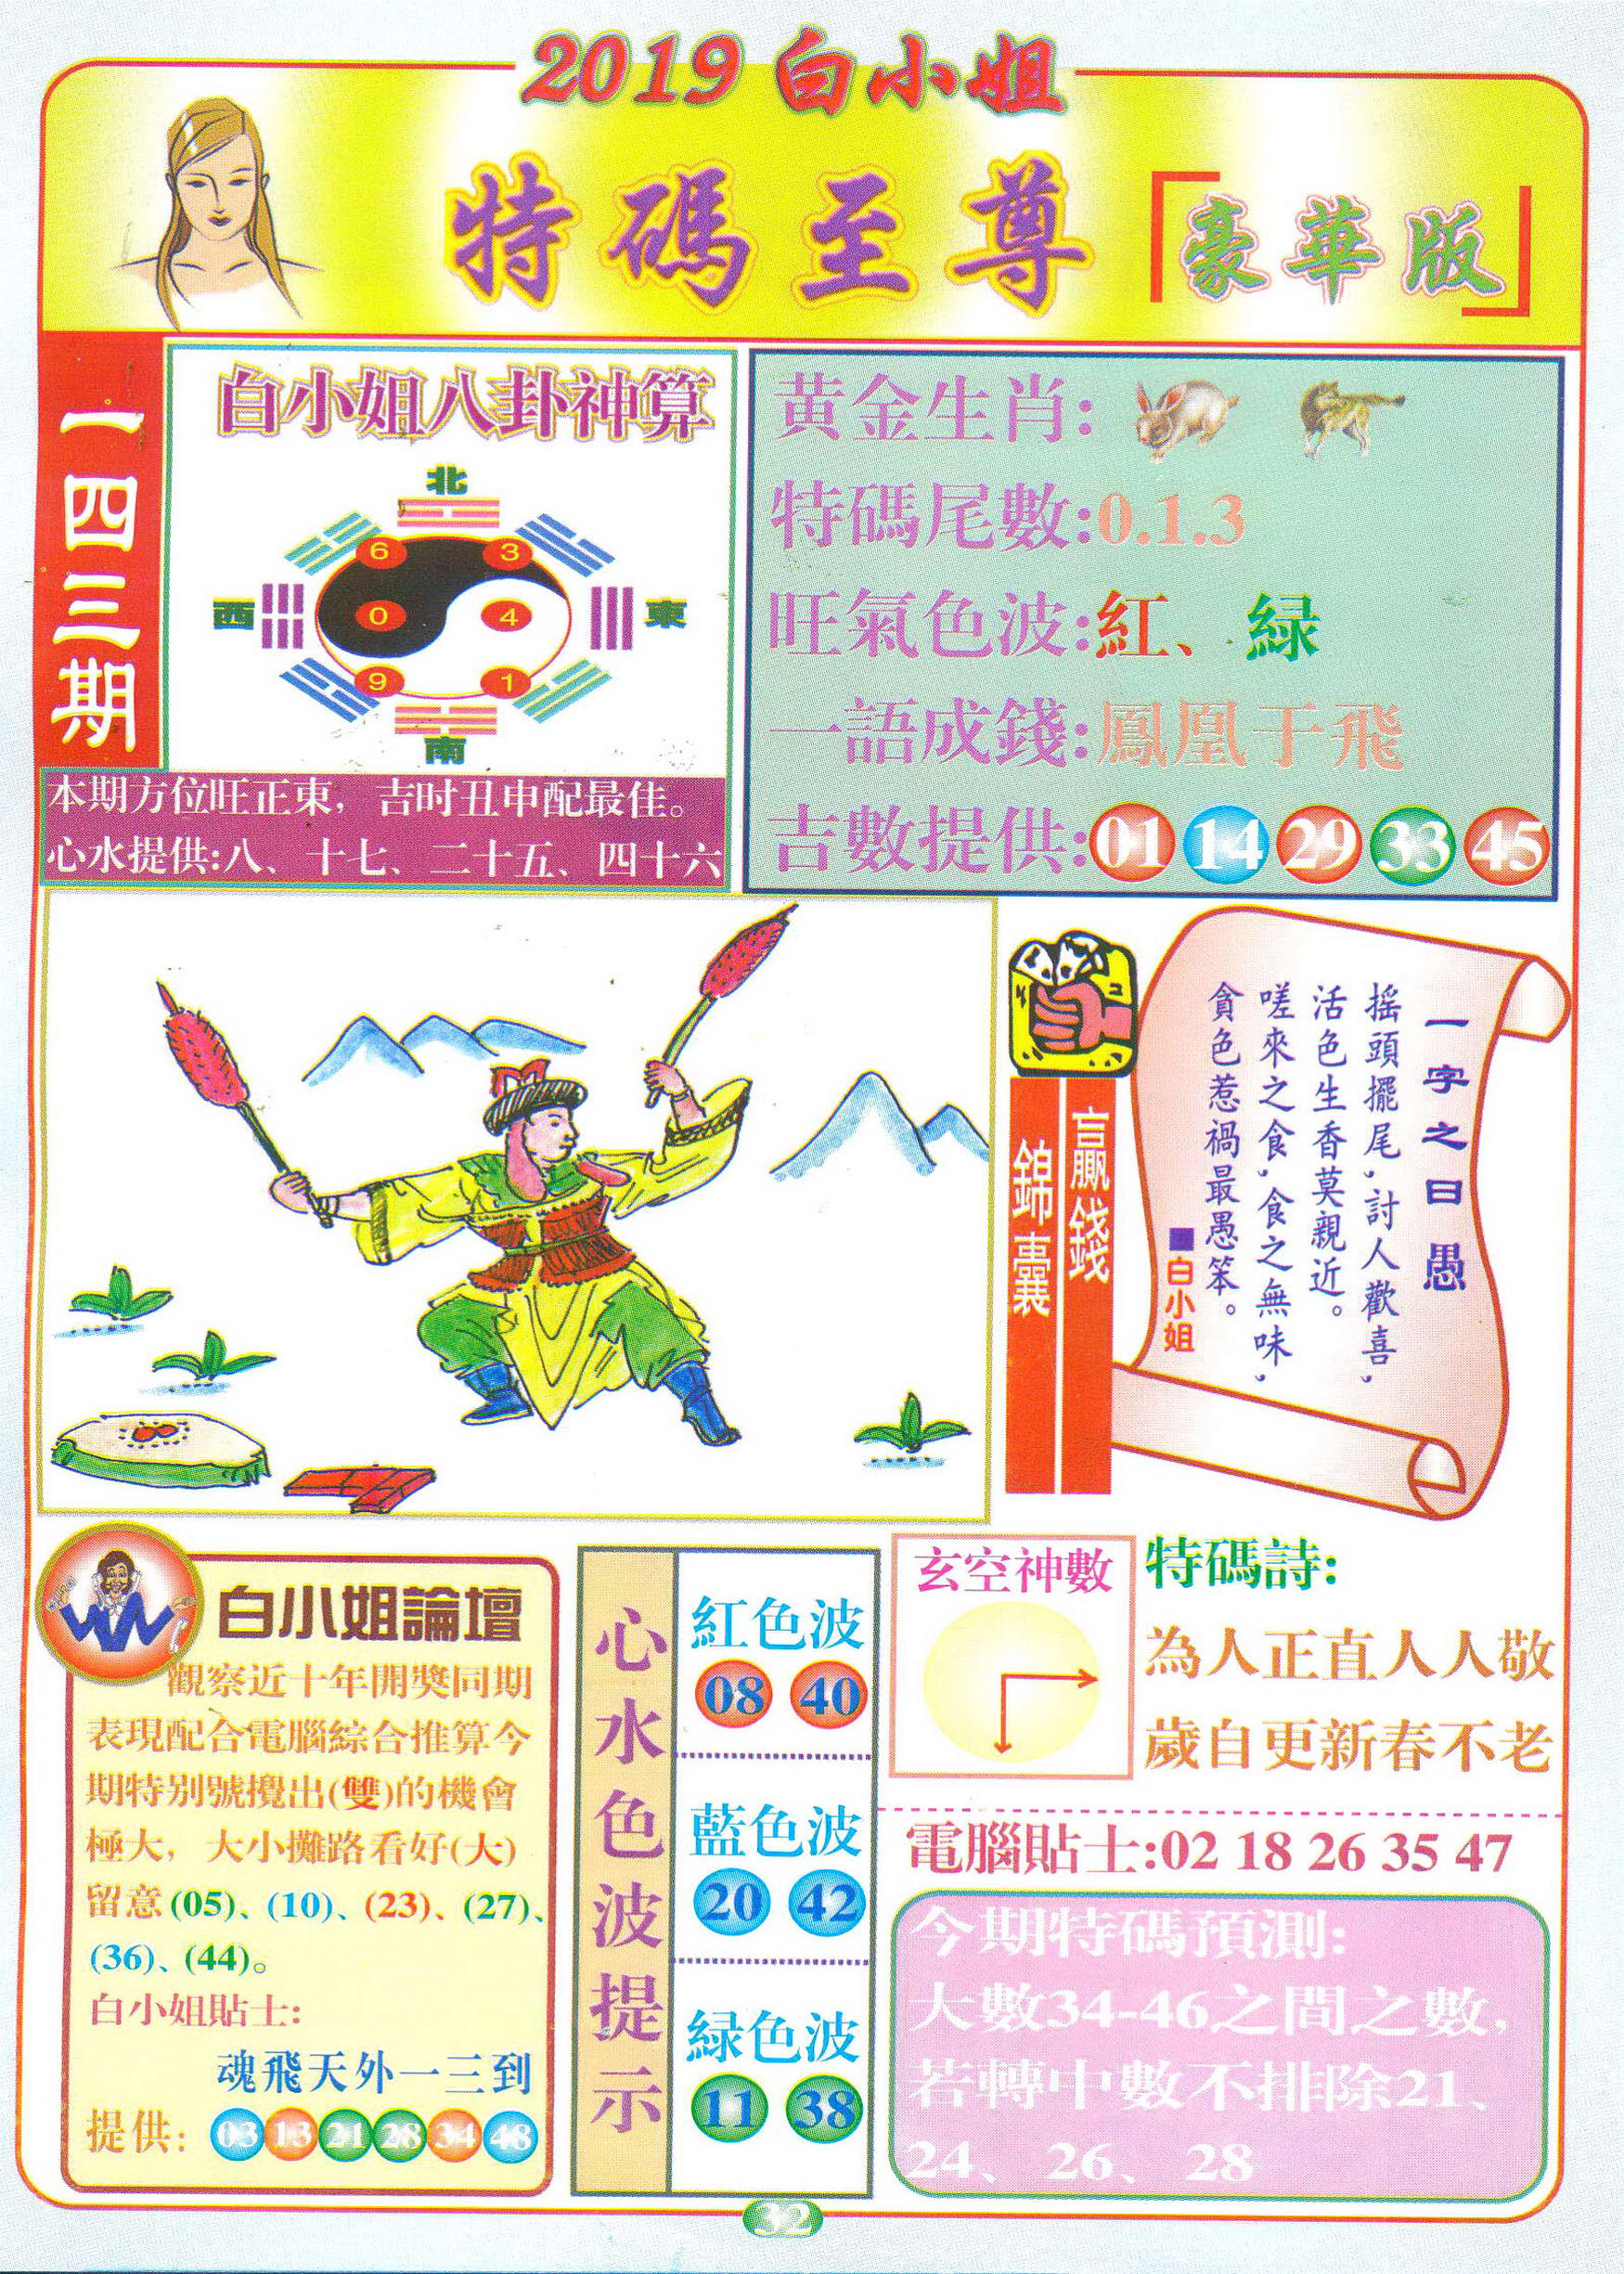 2019 白小姐
特碼至尊「豪華版」
一四三期
白小姐八卦神算
北
6 3
西 0 4 東
9 1
南
本期方位旺正東，吉时丑申配最佳。
心水提供:八、十七、二十五、四十六
黄金生肖:
特碼尾數:0.1.3
旺氣色波:紅、緑
一語成錢:鳳凰于飛
吉數提供:01 14 29 33 45
贏錢
錦囊
一字之曰 愚
摇頭擺尾,討人歡喜,
活色生香莫親近。
嗟來之食,食之無味,
貪色惹禍最愚笨。
■白小姐
白小姐論壇
觀察近十年開獎同期
表現配合電腦綜合推算今
期特别號攪出(雙)的機會
極大，大小攤路看好(大)
留意(05)、(10)、(23)、(27)、
(36)、(44)。
白小姐貼士:
魂飛天外一三到
提供: 03 13 21 28 34 48
心水色波提示
紅色波
08 40
藍色波
20 42
緑色波
11 38
玄空神數
特碼詩:
為人正直人人敬
歲自更新春不老
電腦貼士:02 18 26 35 47
今期特碼預測:
大數34-46之間之數,
若轉中數不排除21、
24、26、28
32